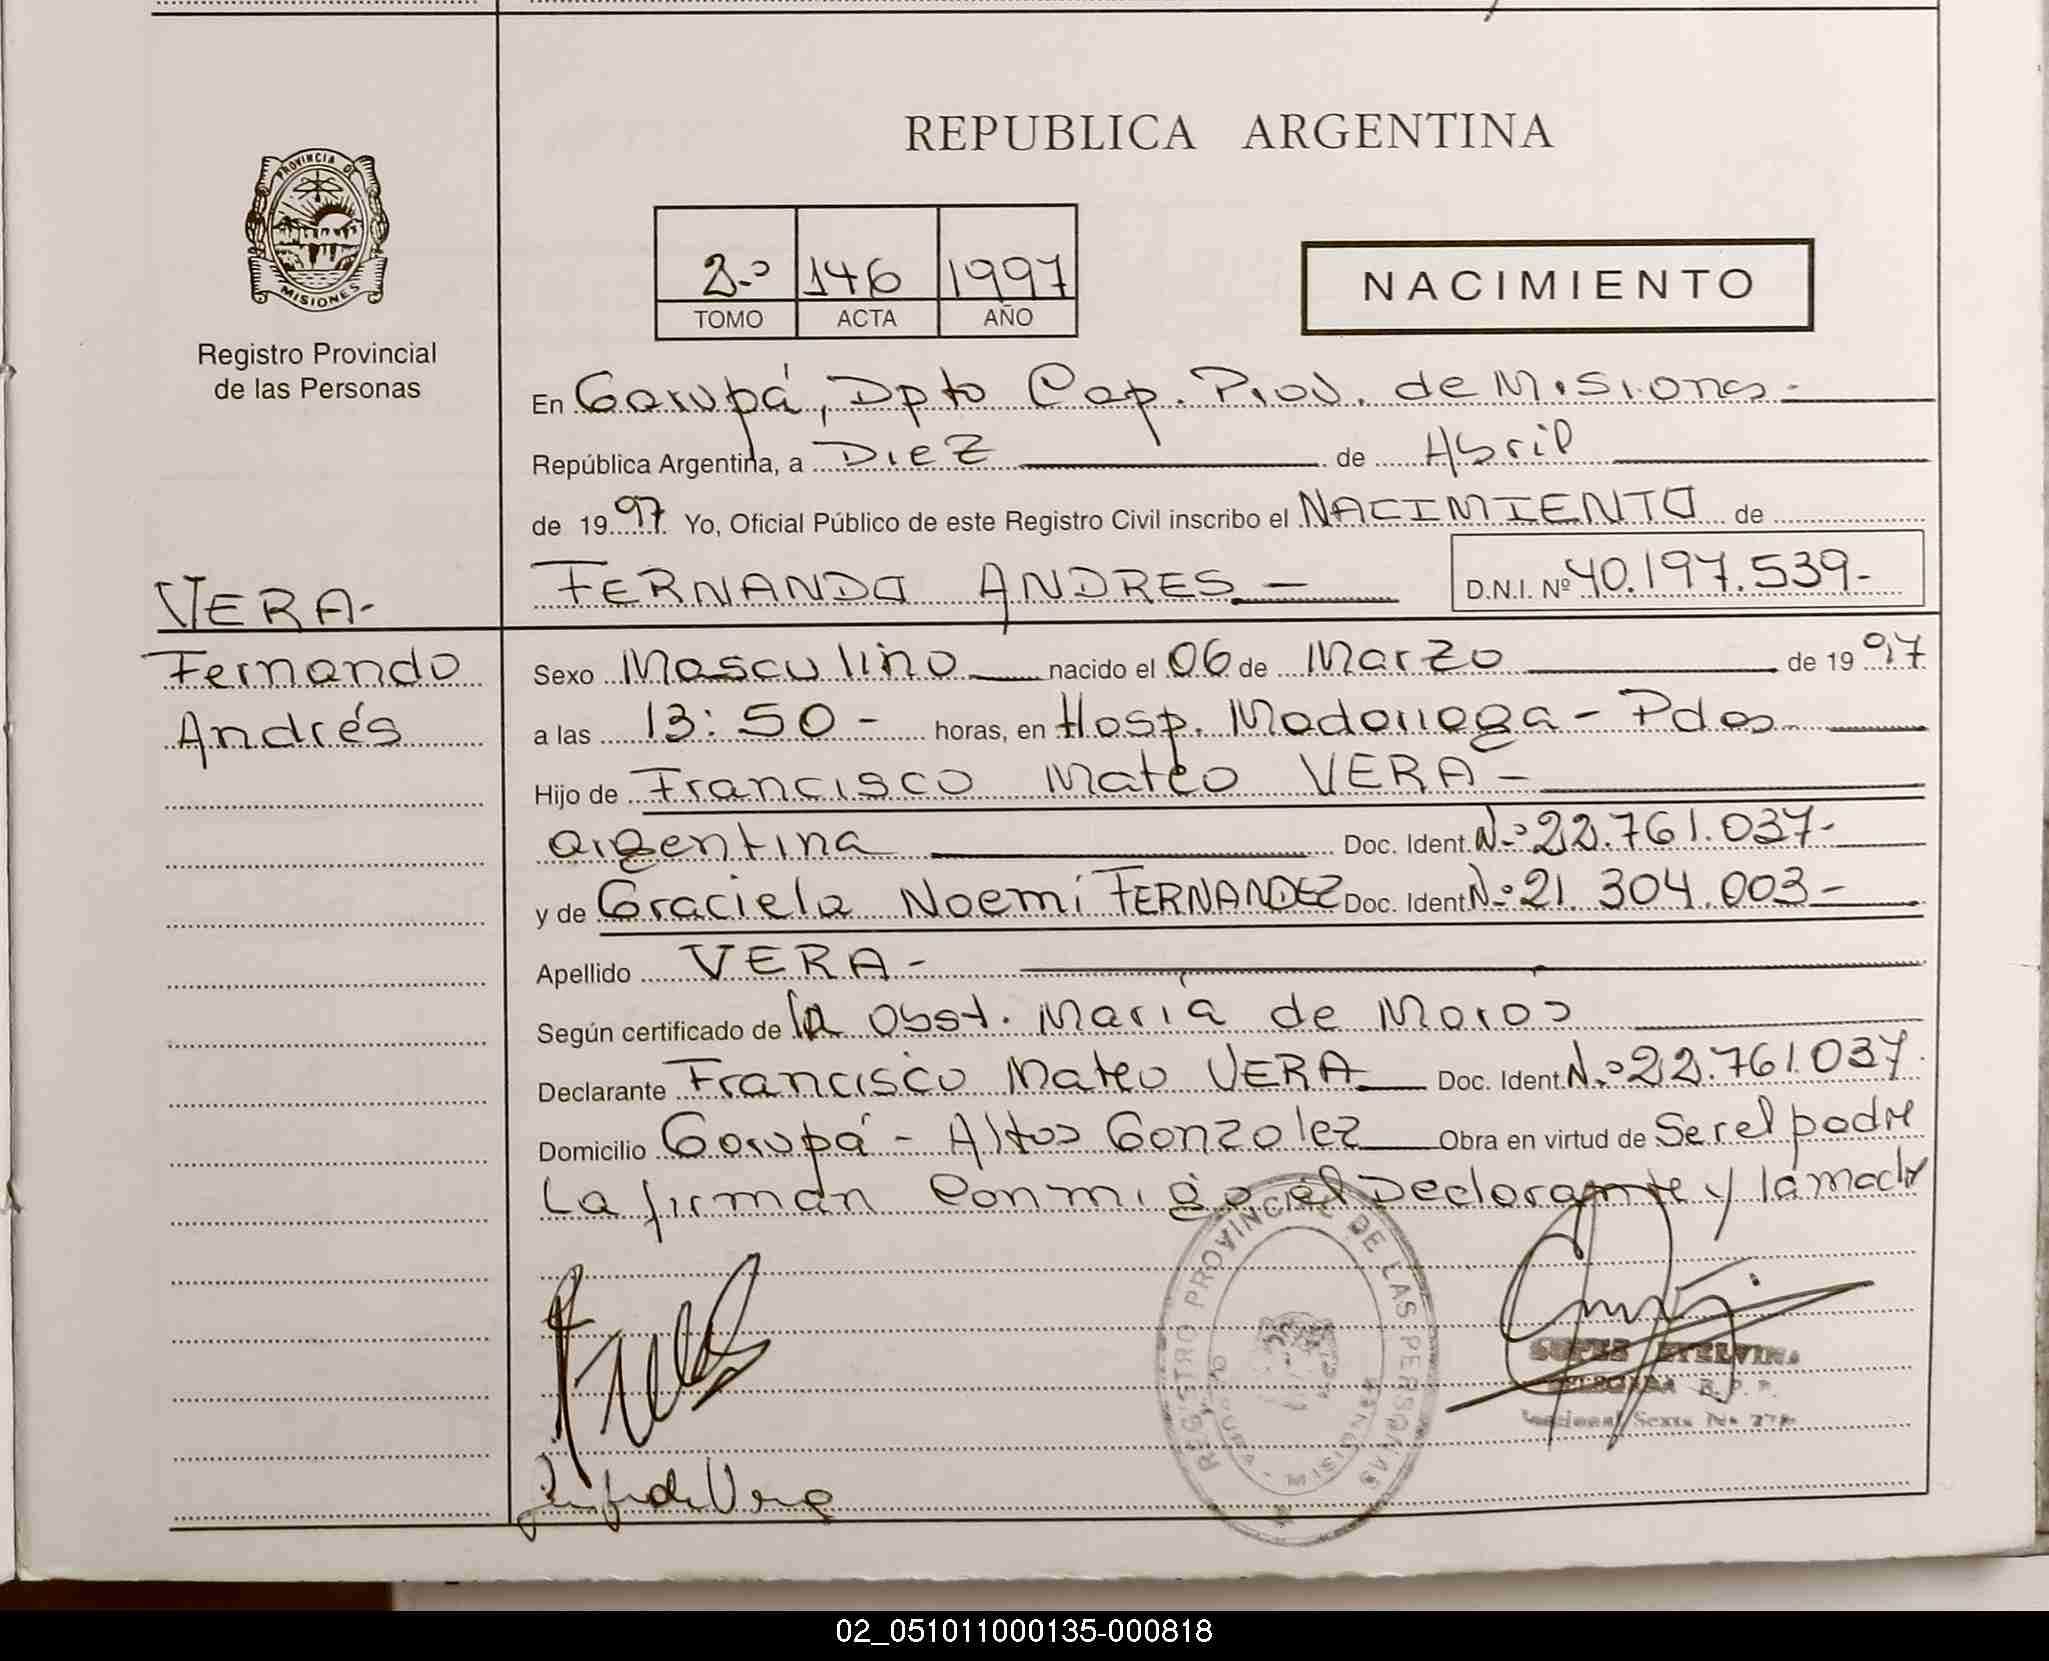 REPUBLICA ARGENTINA
PROVINCIA DE
MISIONES
Registro Provincial
de las Personas
2.º 146 1997
TOMO ACTA AÑO
NACIMIENTO
En Garupá, Dpto Cap. Prov. de Misiones.-
República Argentina, a Diez de Abril
de 1997 Yo, Oficial Público de este Registro Civil inscribo el NACIMIENTO de
FERNANDO ANDRES D.N.I. Nº 40.197.539-
VERA-
Fernando
Andrés
Sexo Masculino nacido el 06 de Marzo de 1997
a las 13:50- horas, en Hosp. Madariaga - Pdas
Hijo de Francisco Mateo VERA-
argentina Doc. Ident. N.º 22.761.037-
y de Graciela Noemí FERNANDEZ Doc. Ident. N.º 21.304.003-
Apellido VERA-
Según certificado de la Obst. María de Moros
Declarante Francisco Mateo VERA Doc. Ident. N.º 22.761.037.
Domicilio Garupá - Altos Gonzalez Obra en virtud de Ser el padre
La firman Conmigo, el Declarante y la madre
REGISTRO PROVINCIAL DE LAS PERSONAS
de Vera
ETELVINA
DELEGADA R.P.P.
Seccional Sexta
02_051011000135-000818